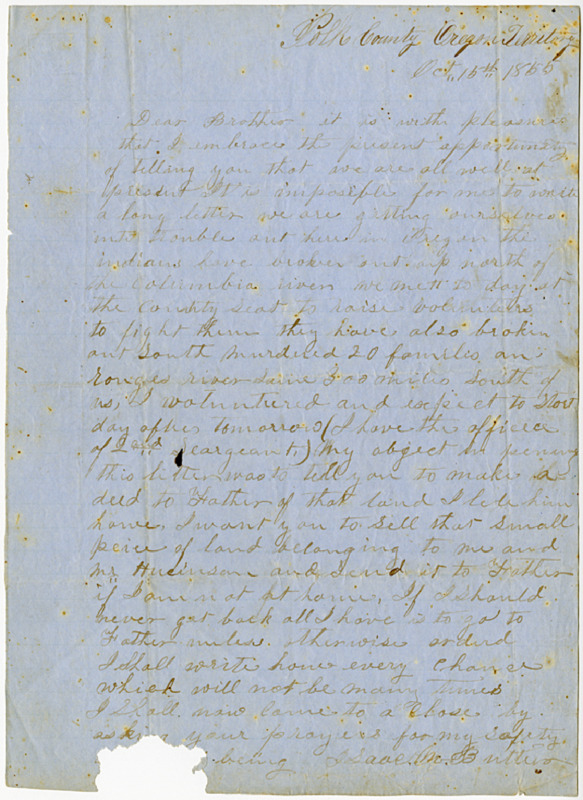 Polk County Oregon Territory
Oct, 15th 1855
Dear Brother it is with pleasure
that I embrace the present opportunity
of telling you that we are all well at
present It is imposible for me to write
a long letter we are getting ourselves
into trouble out here in Oregon the
indians have broken out up north of
the Columbia river we mett to day at
the County Seat to raise volunteers
to fight them they have also brokin
out South murdered 20 families on
Rouges river Some 300 miles South of
us, I voluntered and expect to
day after tomorrow (I have the officer
of 2nd Seargeant,) My object in pening
this letter was to tell you to make a
deed to Father of that land I let him
have, I want you to Sell that Small
peice of land belonging to me and
Mr and Send it to Father
if I am not at home, If I should
never get back all I have is to go to
Father unless otherwise orderd
I Shall write home every chance
which will not be many times
I Shall now came to a Close by
your prayers for my Safety
being Isaac M. Butler